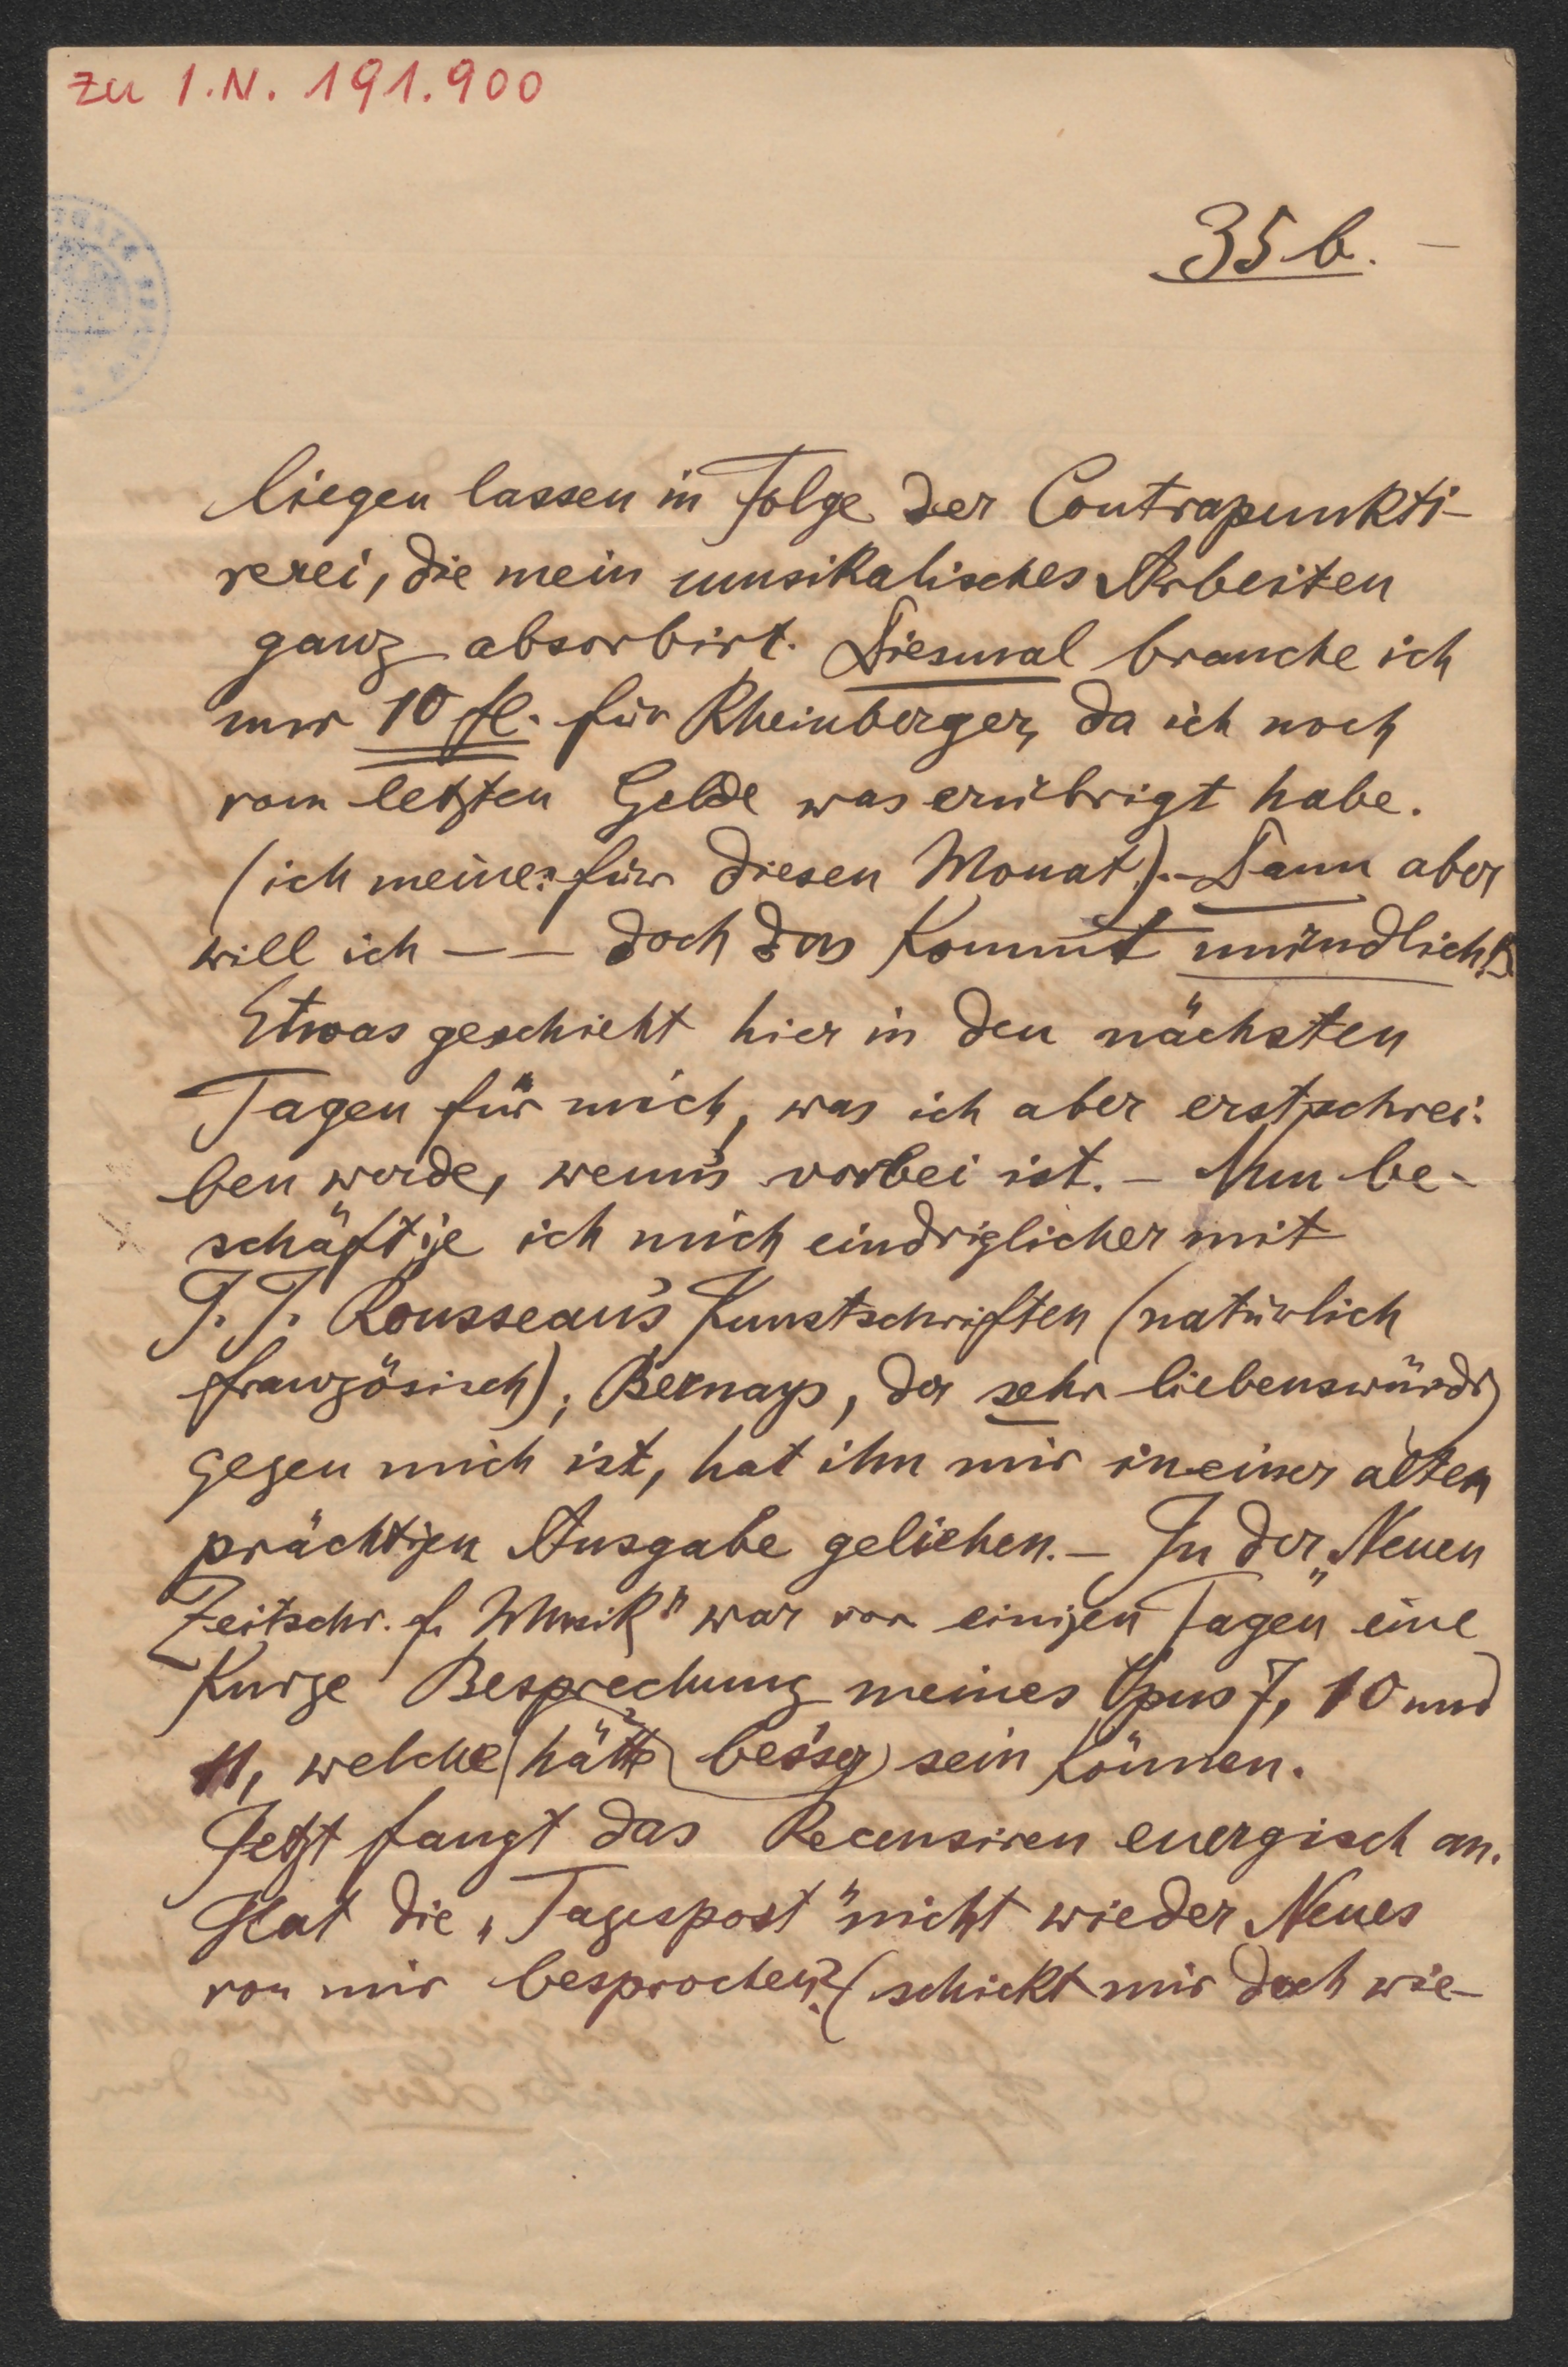 zu I.N. 191.900
35 b. –
liegen lassen in Folge der Contrapunkti-
rerei, die mein musikalisches Arbeiten
ganz absorbirt. Diesmal brauche ich
nur 10 fl. für Rheinberger, da ich noch
vom letzten Gelde was erübrigt habe.
(ich meine: für diesen Monat). – Dann aber
will ich – – doch das kommt mündlich!
Etwas geschieht hier in den nächsten
Tagen für mich, was ich aber erst schrei-
ben werde, wenn's vorbei ist. – Nun be-
schäftige ich mich eindriglicher mit
J. J. Rousseau's Kunstschriften (natürlich
französisch); Bernays, der sehr liebenswürdig
gegen mich ist, hat ihn mir in einer alten
prächtigen Ausgabe geliehen. – In der „Neuen
Zeitschr. f. Musik" war vor einigen Tagen eine
kurze Besprechung meines Opus 7, 10 und
11, welche hätte besser sein können.
Jetzt fangt das Recensiren energisch an.
Hat die „Tagespost" nicht wieder Neues
von mir besprochen? (schickt mir doch wie-